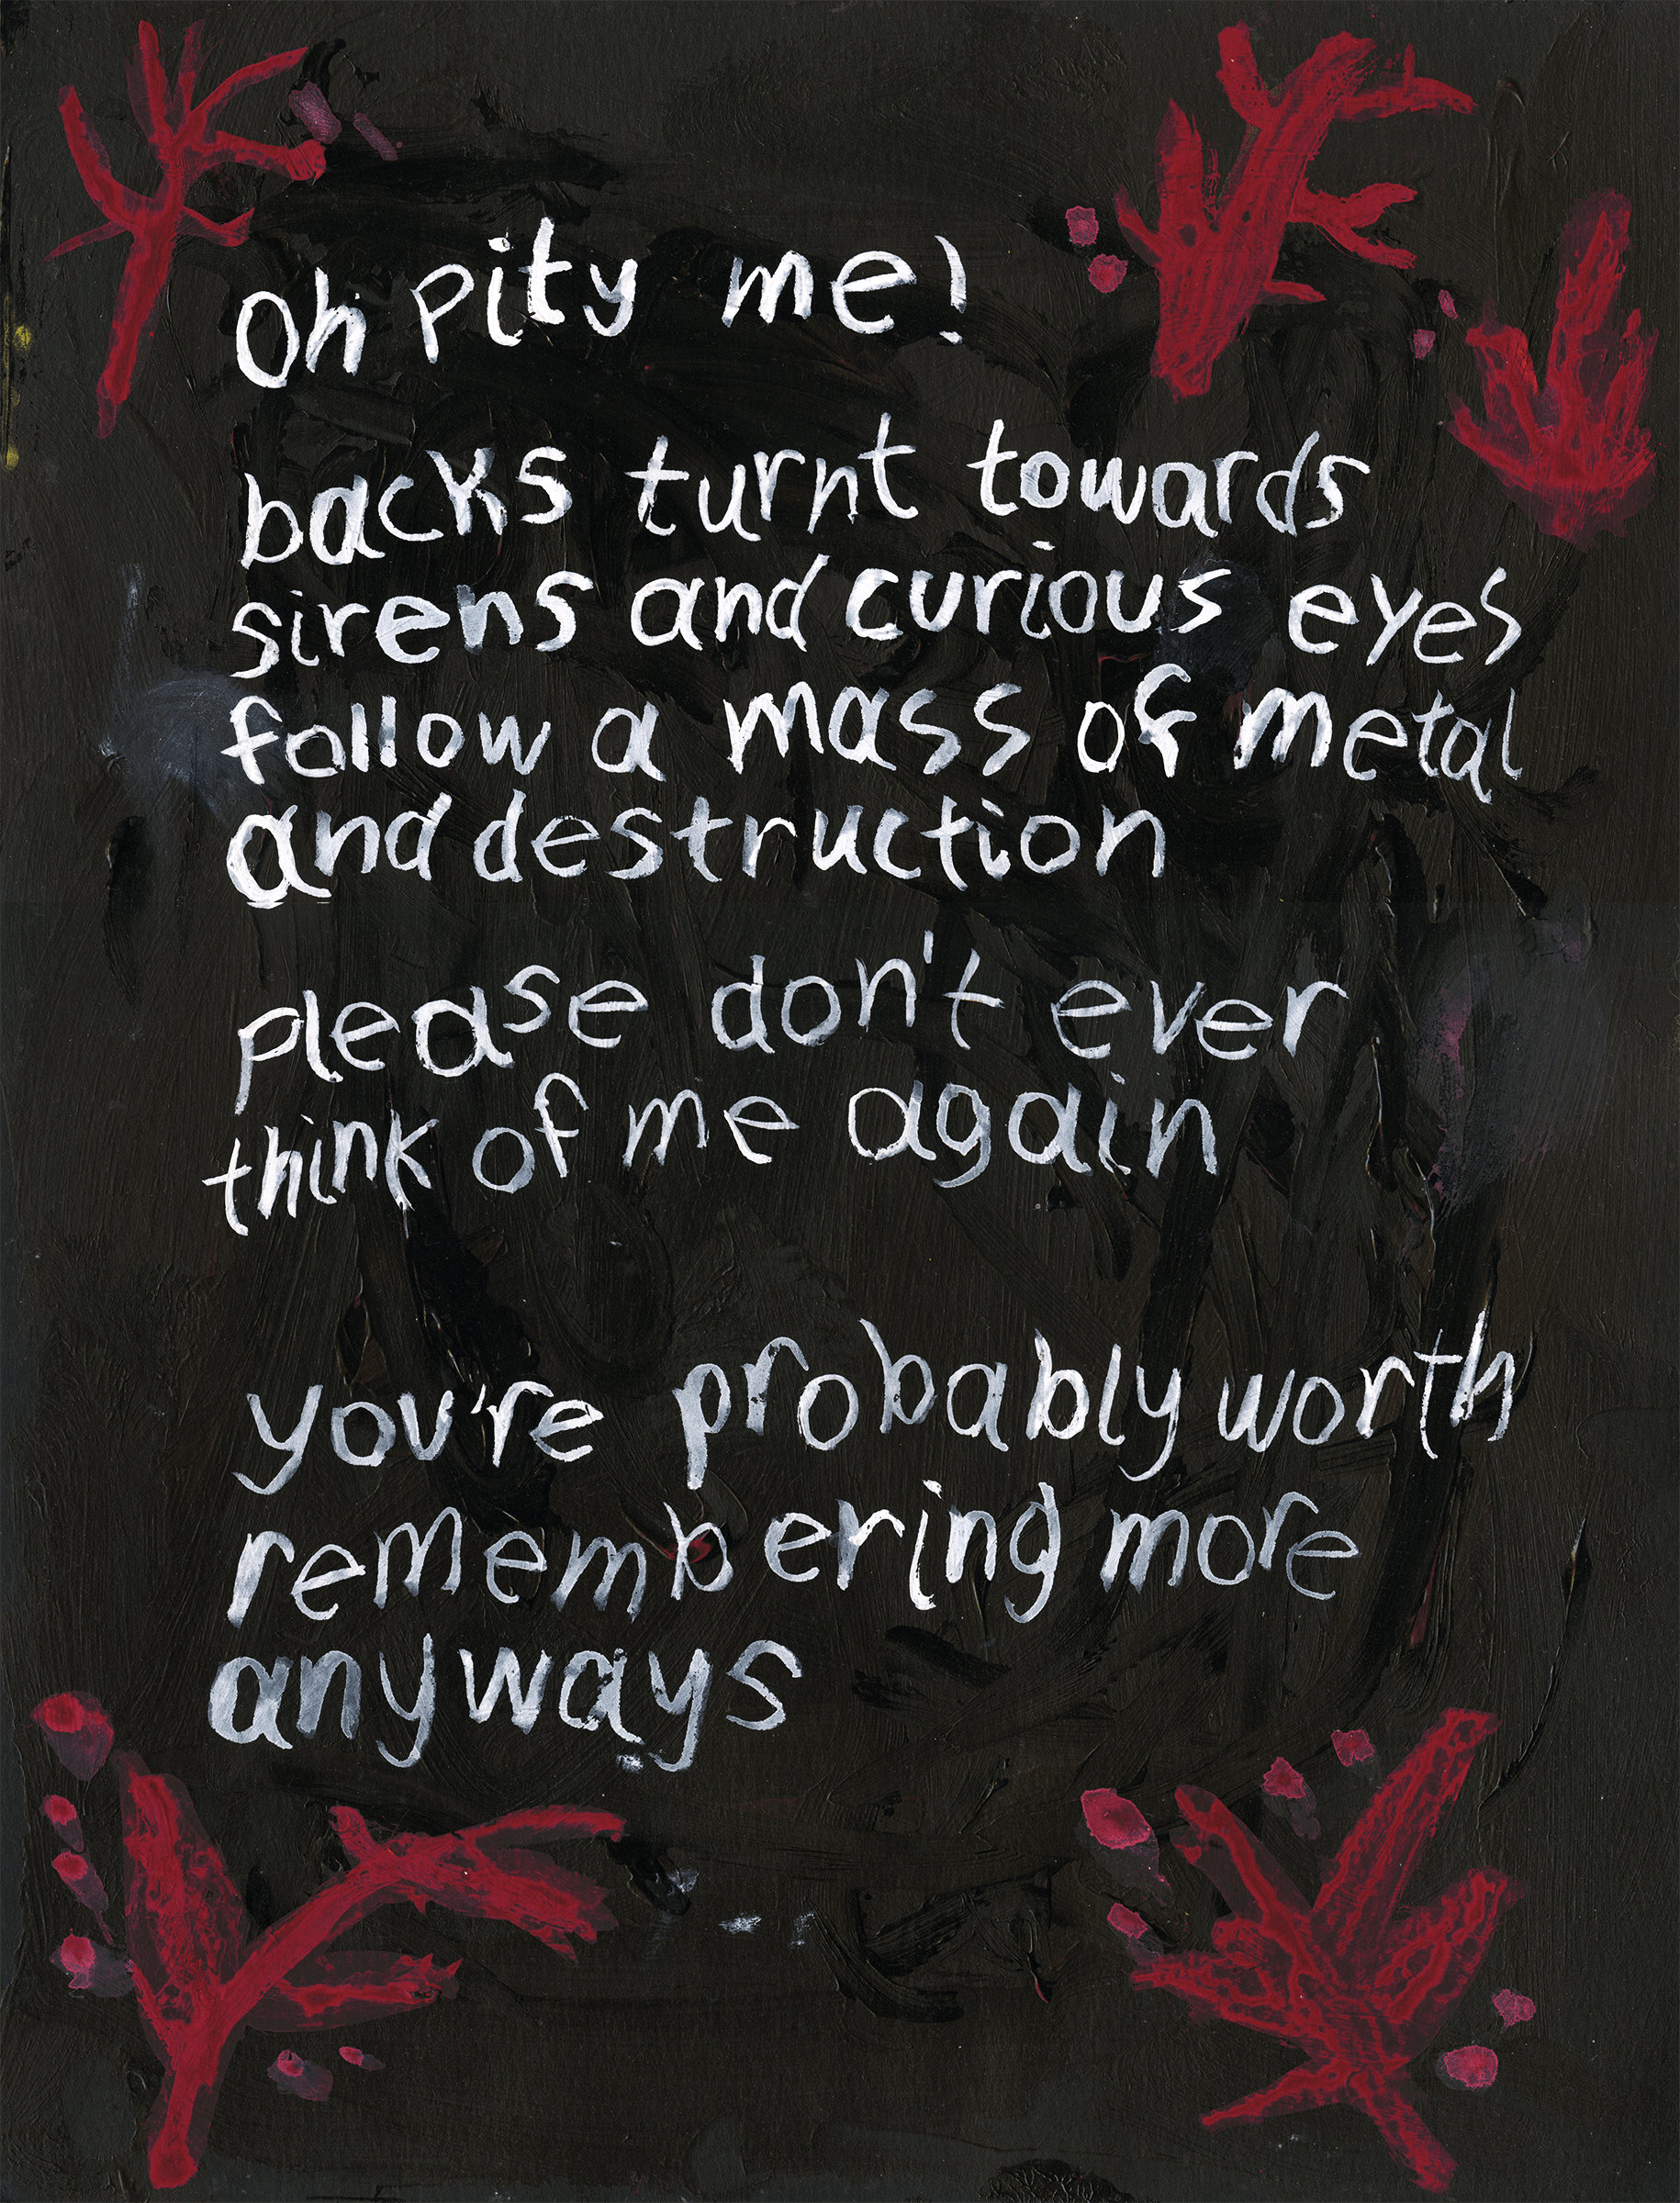 Oh pity me!
backs turnt towards
sirens and curious eyes
follow a mass of metal
and destruction
please don't ever
think of me again
you're probably worth
remembering more
anyways